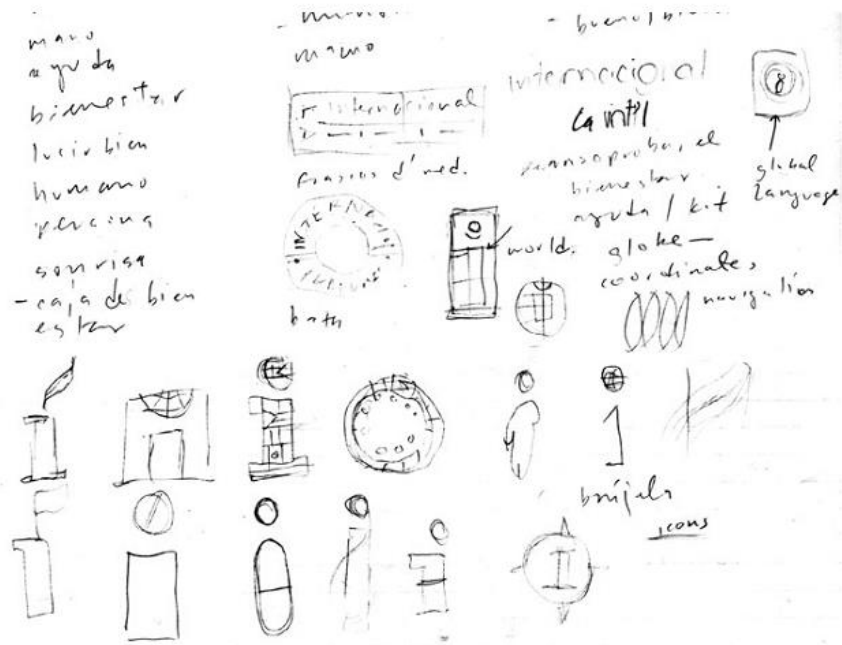 mano
ayuda
bienestar
lucir bien
humano
persona
sonrisa
- caja de bien
estar
mano
Internacional
frascos d' med.
INTERNA
bath
internacional
La int'l
bienestar
ayuda / kit
globe —
coordinates
navigation
world.
8
global
language
brújula
icons
I